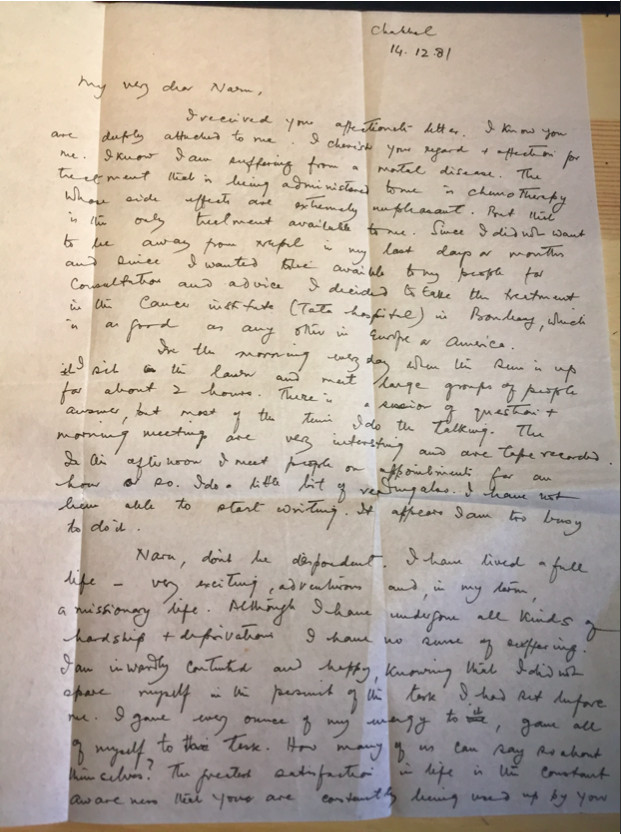 Chabhil
14.12.81
My very dear Narn,
I received your affectionate letter. I know you
are deeply attached to me. I cherish your regard + affection for
me. I know I am suffering from a mortal disease. The
treatment that is being administered to me is chemotherapy
whose side effects are extremely unpleasant. But that
is the only treatment available to me. Since I did not want
to be away from Nepal in my last days or months
and since I wanted to be available to my people for
consultation and advice I decided to take the treatment
in the Cancer institute (Tata hospital) in Bombay, which
is as good as any other in Europe or America.
In the morning every day when the sun is up
I sit in the lawn and meet large groups of people
for about 2 hours. There is a session of question +
answer, but most of the time I do the talking. The
morning meeting are very interesting and are tape recorded.
In the afternoon I meet people on appointments for an
hour or so. I do a little bit of reading also. I have not
been able to start writing. It appears I am too busy
to do it.
Narn, don't be despondent. I have lived a full
life – very exciting, adventurous and, in my term,
a missionary life. Although I have undergone all kinds of
hardship + deprivations I have no sense of suffering.
I am inwardly contented and happy, knowing that I did not
spare myself in the pursuit of the task I had set before
me. I gave every ounce of my energy to it, gave all
of myself to this task. How many of us can say so about
themselves? The greatest satisfaction in life is the constant
awareness that you are constantly being used up by your